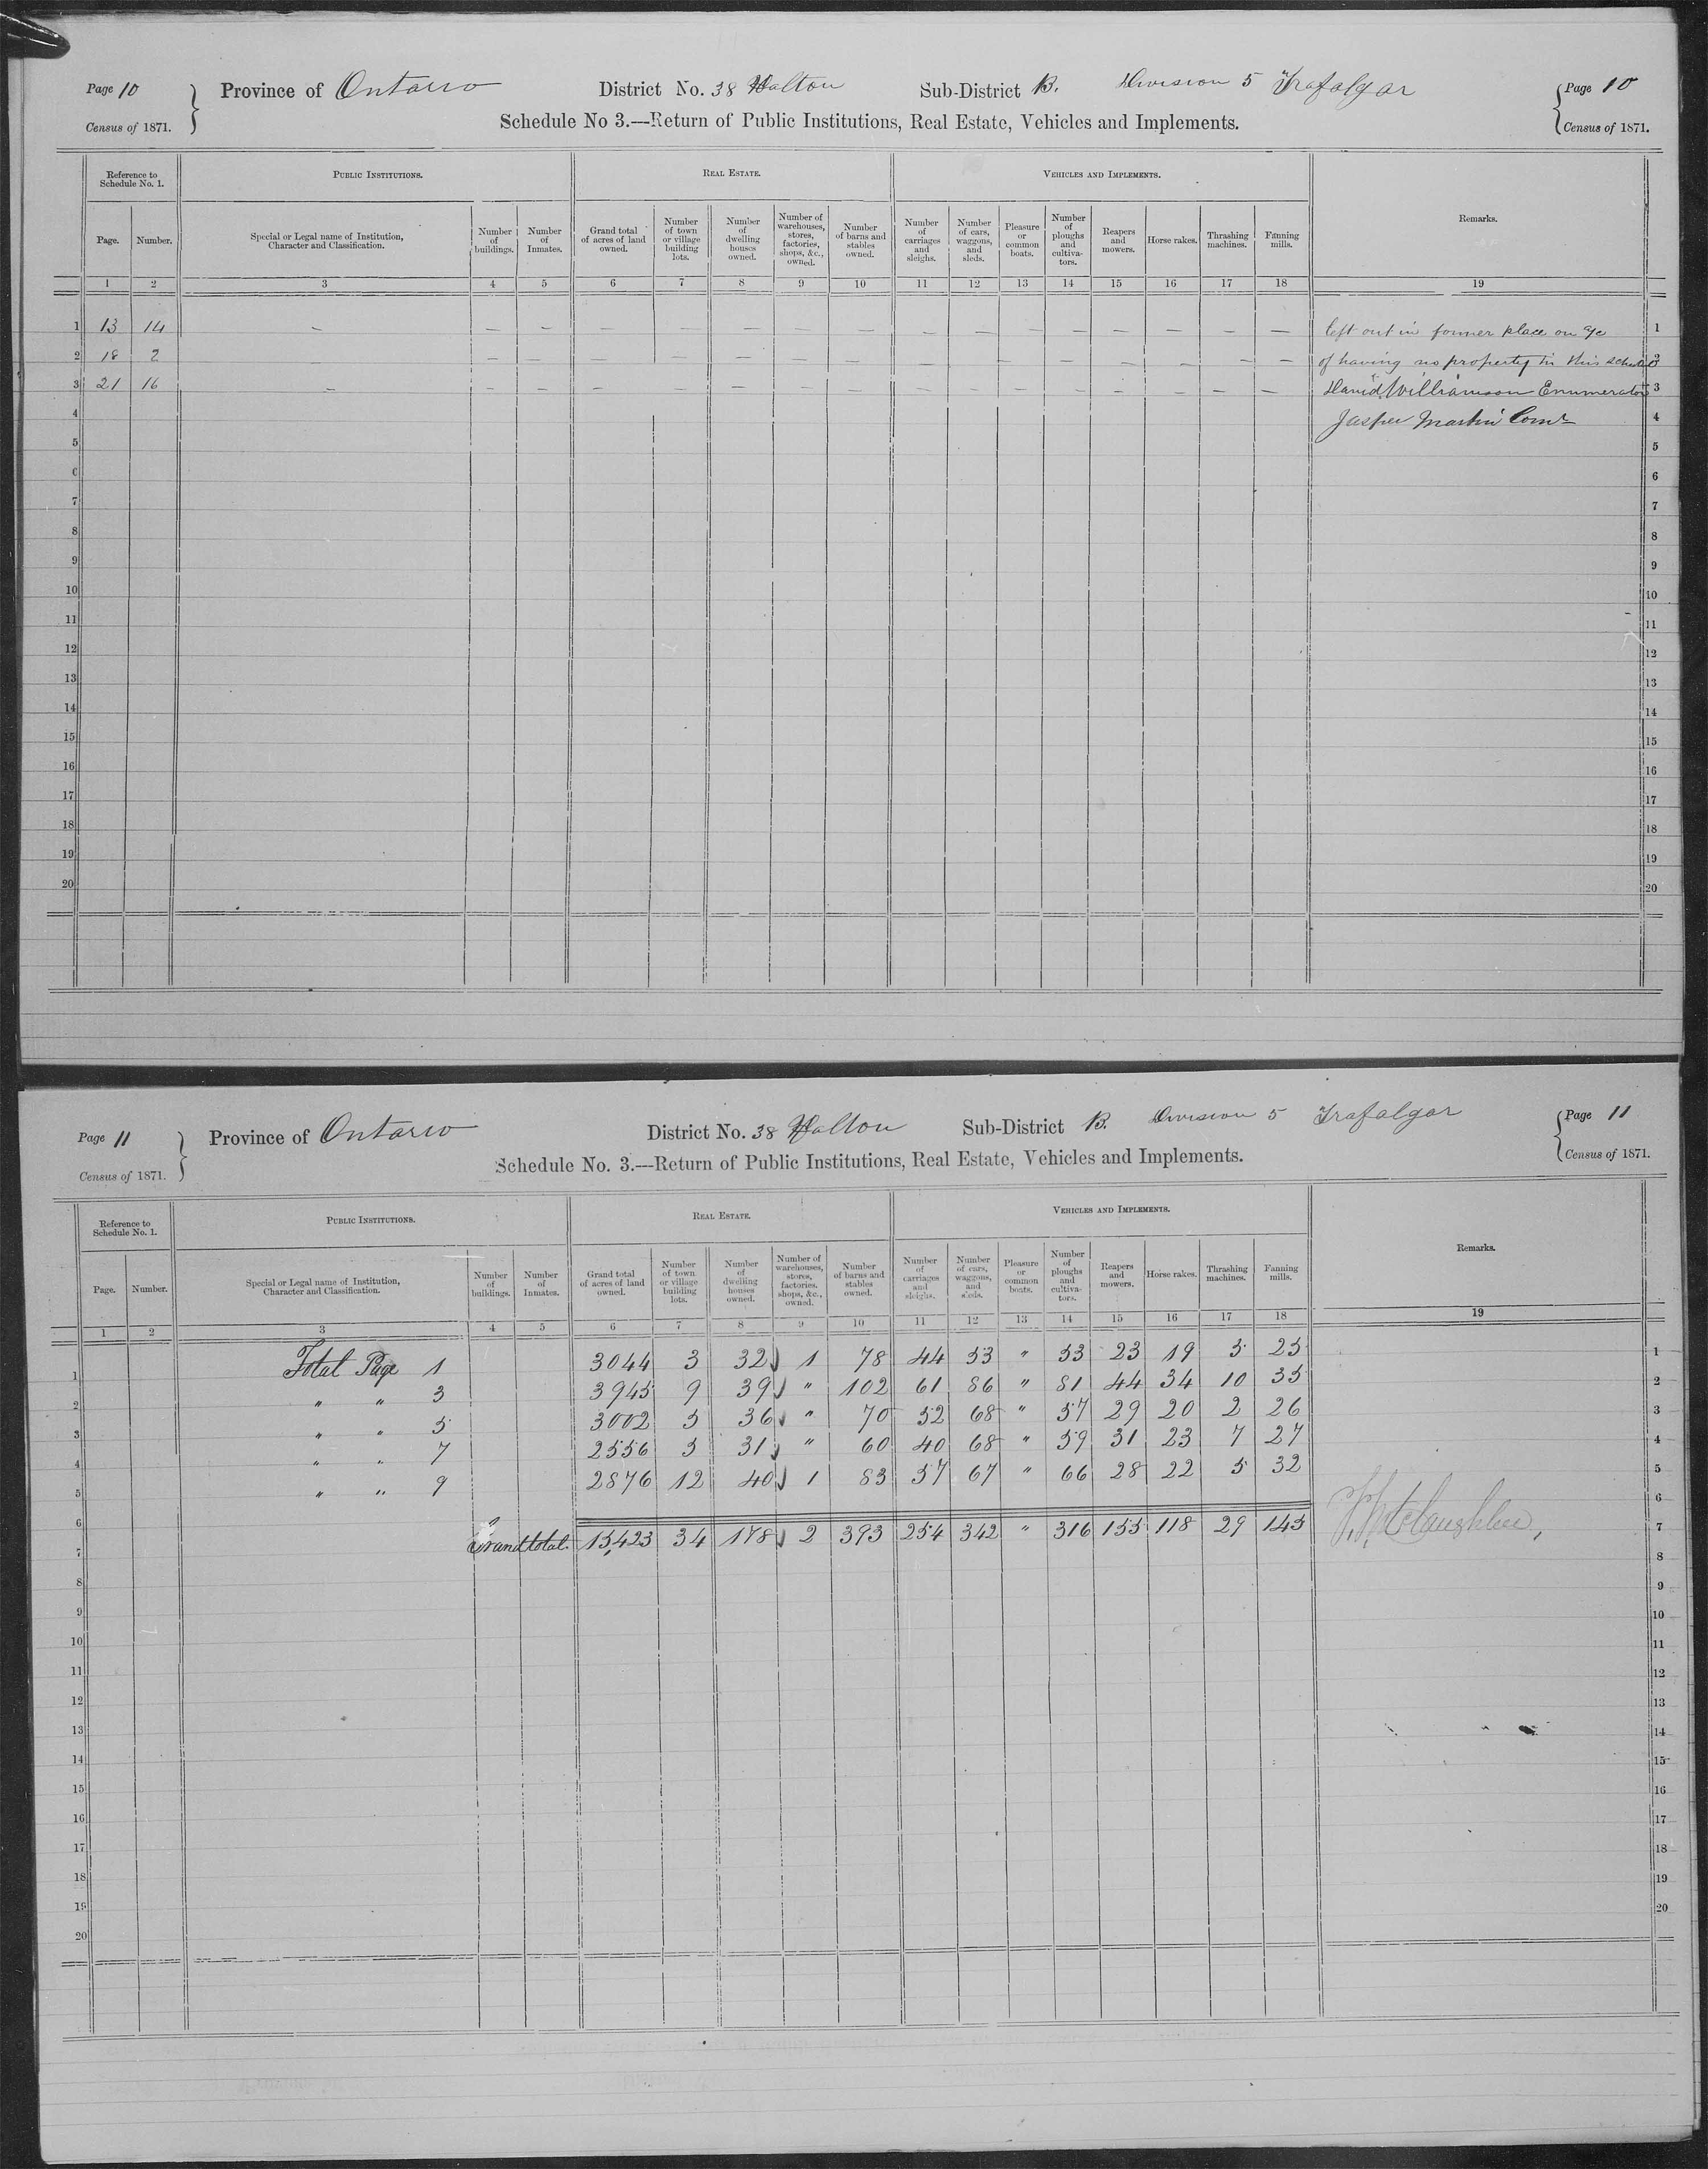 Page 10 Province of Ontario District No. 38 Halton Sub-District B. Division 5 Trafalgar Page 10
Census of 1871. Schedule No 3.—Return of Public Institutions, Real Estate, Vehicles and Implements. Census of 1871.
Reference to Schedule No. 1. PUBLIC INSTITUTIONS. REAL ESTATE. VEHICLES AND IMPLEMENTS. Remarks.
Page. Number. Special or Legal name of Institution, Character and Classification. Number of buildings. Number of Inmates. Grand total of acres of land owned. Number of town or village building lots. Number of dwelling houses owned. Number of warehouses, stores, factories, shops, &c., owned. Number of barns and stables owned. Number of carriages and sleighs. Number of cars, waggons, and sleds. Pleasure or common boats. Number of ploughs and cultiva-tors. Reapers and mowers. Horse rakes. Thrashing machines. Fanning mills.
1 2 3 4 5 6 7 8 9 10 11 12 13 14 15 16 17 18 19
1 13 14 — — — — — — — — — — — — — — — — left out in former place on a/c 1
2 18 2 — — — — — — — — — — — — — — — — of having no property in this schedule 2
3 21 16 — — — — — — — — — — — — — — — — David Williamson Enumerator 3
4 Jasper Martin Comr 4
5 5
6 6
7 7
8 8
9 9
10 10
11 11
12 12
13 13
14 14
15 15
16 16
17 17
18 18
19 19
20 20
Page 11 Province of Ontario District No. 38 Halton Sub-District B. Division 5 Trafalgar Page 11
Census of 1871. Schedule No. 3.—Return of Public Institutions, Real Estate, Vehicles and Implements. Census of 1871.
Reference to Schedule No. 1. PUBLIC INSTITUTIONS. REAL ESTATE. VEHICLES AND IMPLEMENTS. Remarks.
Page. Number. Special or Legal name of Institution, Character and Classification. Number of buildings. Number of Inmates. Grand total of acres of land owned. Number of town or village building lots. Number of dwelling houses owned. Number of warehouses, stores, factories, shops, &c., owned. Number of barns and stables owned. Number of carriages and sleighs. Number of cars, waggons, and sleds. Pleasure or common boats. Number of ploughs and cultiva-tors. Reapers and mowers. Horse rakes. Thrashing machines. Fanning mills.
1 2 3 4 5 6 7 8 9 10 11 12 13 14 15 16 17 18 19
1 Total Page 1 3044 3 32 1 78 44 53 " 53 23 19 5 25 1
2 " " 3 3945 9 39 " 102 61 86 " 81 44 34 10 35 2
3 " " 5 3002 5 36 " 70 52 68 " 57 29 20 2 26 3
4 " " 7 2556 5 31 " 60 40 68 " 59 31 23 7 27 4
5 " " 9 2876 12 40 1 83 57 67 " 66 28 22 5 32 5
6 6
7 Grand total. 15,423 34 178 2 393 254 342 " 316 155 118 29 145 McLaughlin, 7
8 8
9 9
10 10
11 11
12 12
13 13
14 14
15 15
16 16
17 17
18 18
19 19
20 20